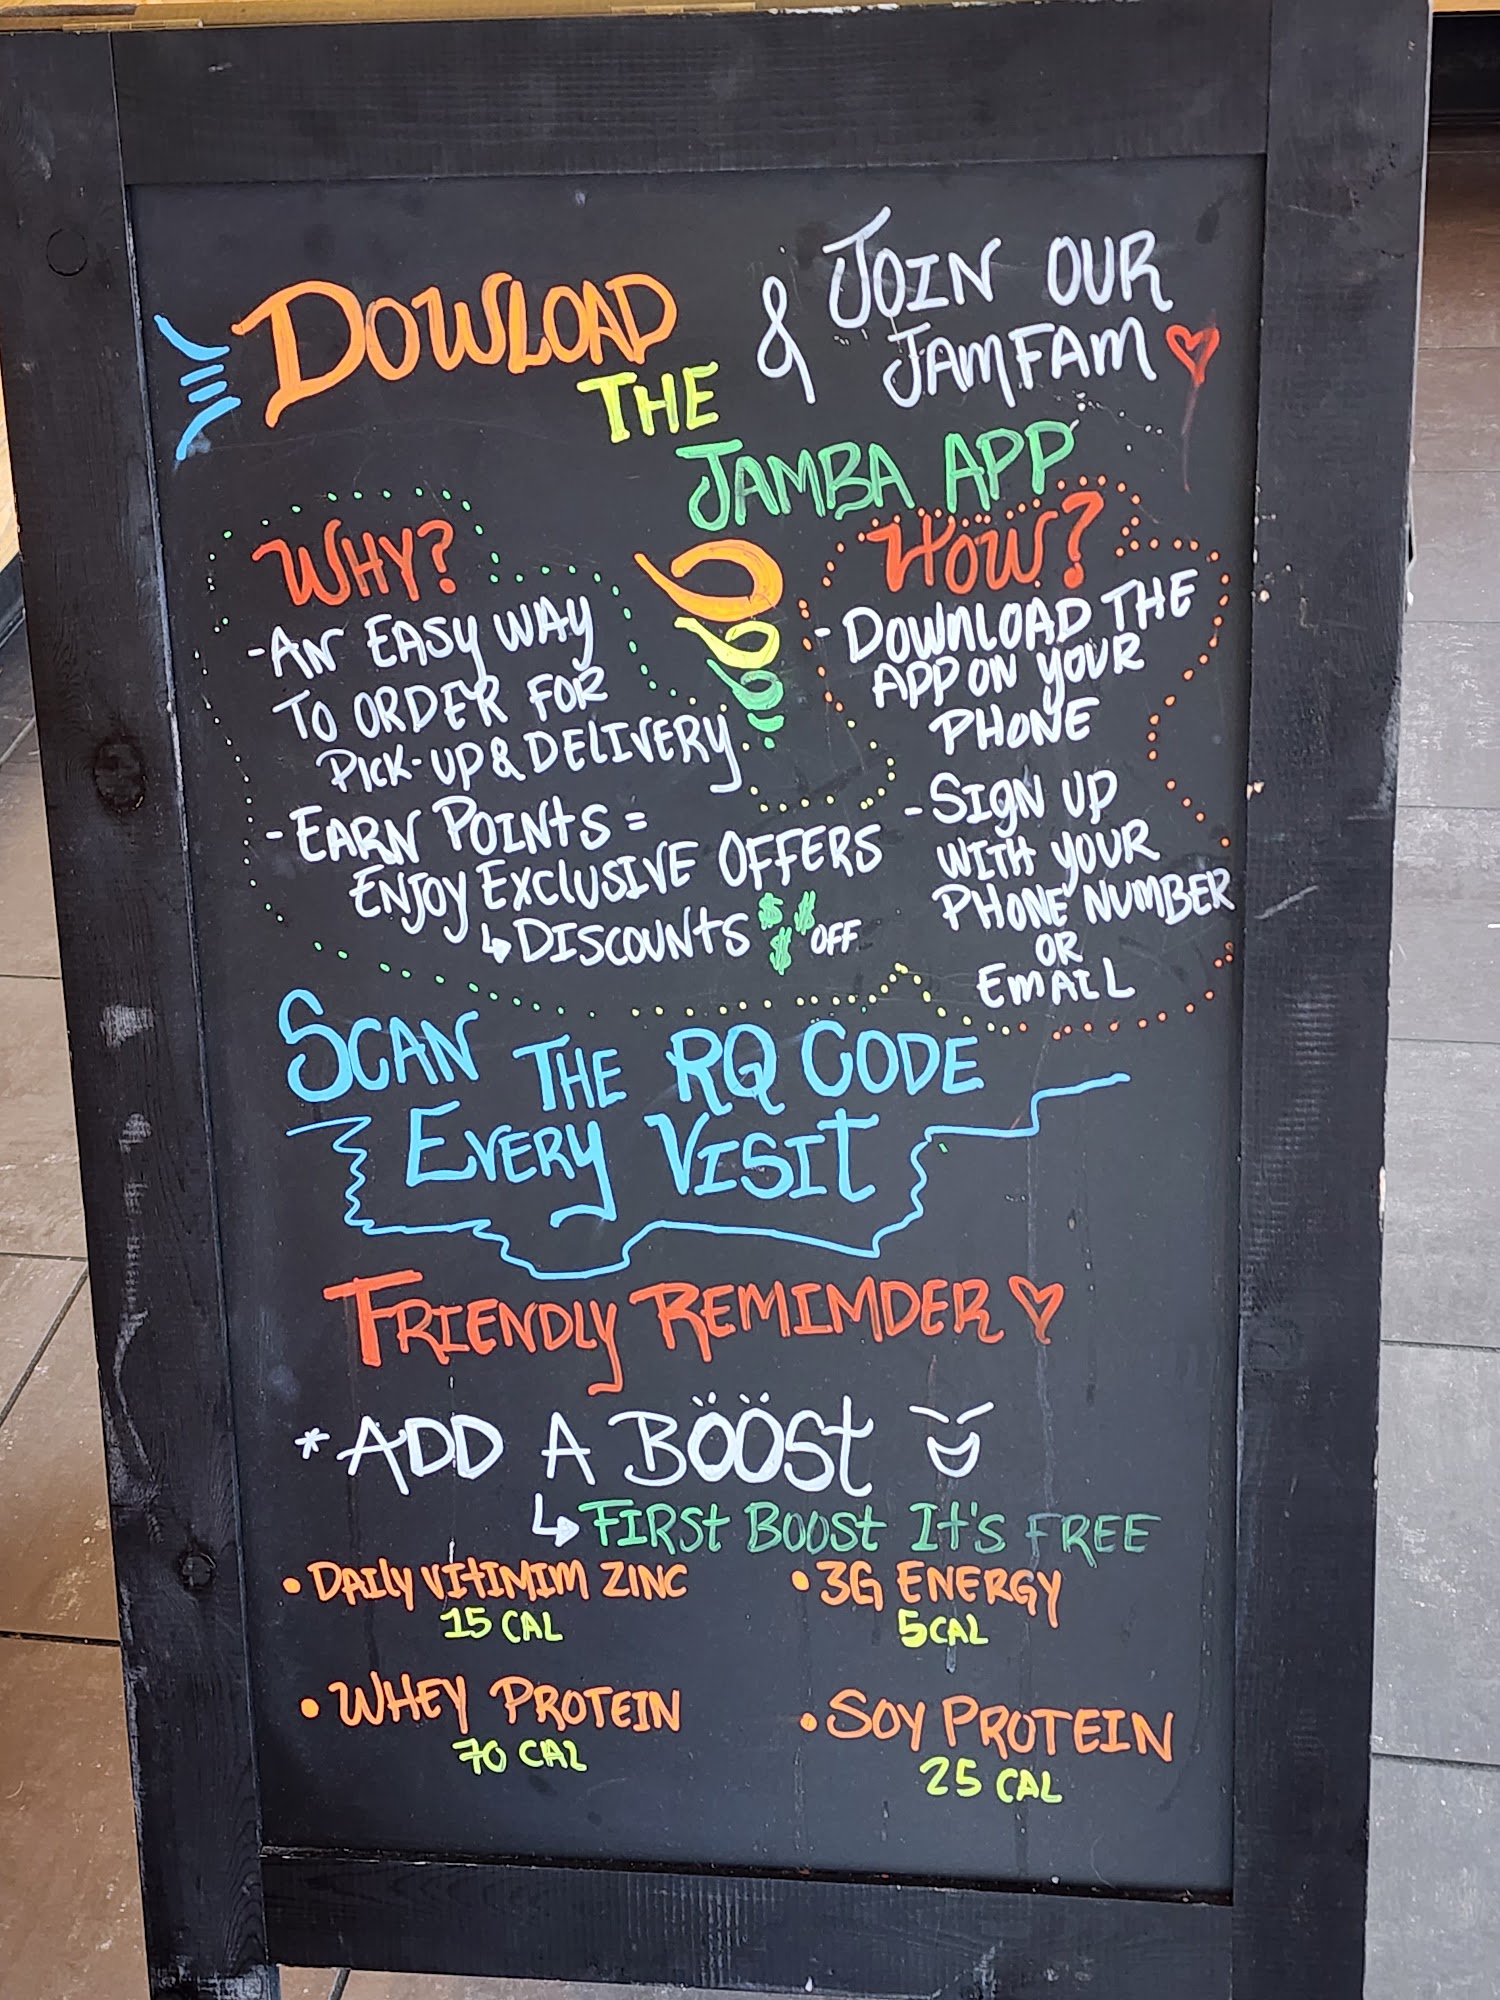 DOWLOAD
THE
JAMBA APP
& JOIN OUR
JAMFAM
WHY?
- AN EASY WAY
TO ORDER FOR
PICK-UP & DELIVERY
- EARN POINTS =
ENJOY EXCLUSIVE OFFERS
↳ DISCOUNTS $ $ $ OFF
HOW?
- DOWNLOAD THE
APP ON YOUR
PHONE
- SIGN UP
WITH YOUR
PHONE NUMBER
OR
EMAIL
SCAN THE RQ CODE
EVERY VISIT
FRIENDLY REMIMDER
* ADD A BÖÖST
↳ FIRST BOOST IT'S FREE
• DAILY VITIMIM ZINC
15 CAL
• 3G ENERGY
5 CAL
• WHEY PROTEIN
70 CAL
• SOY PROTEIN
25 CAL